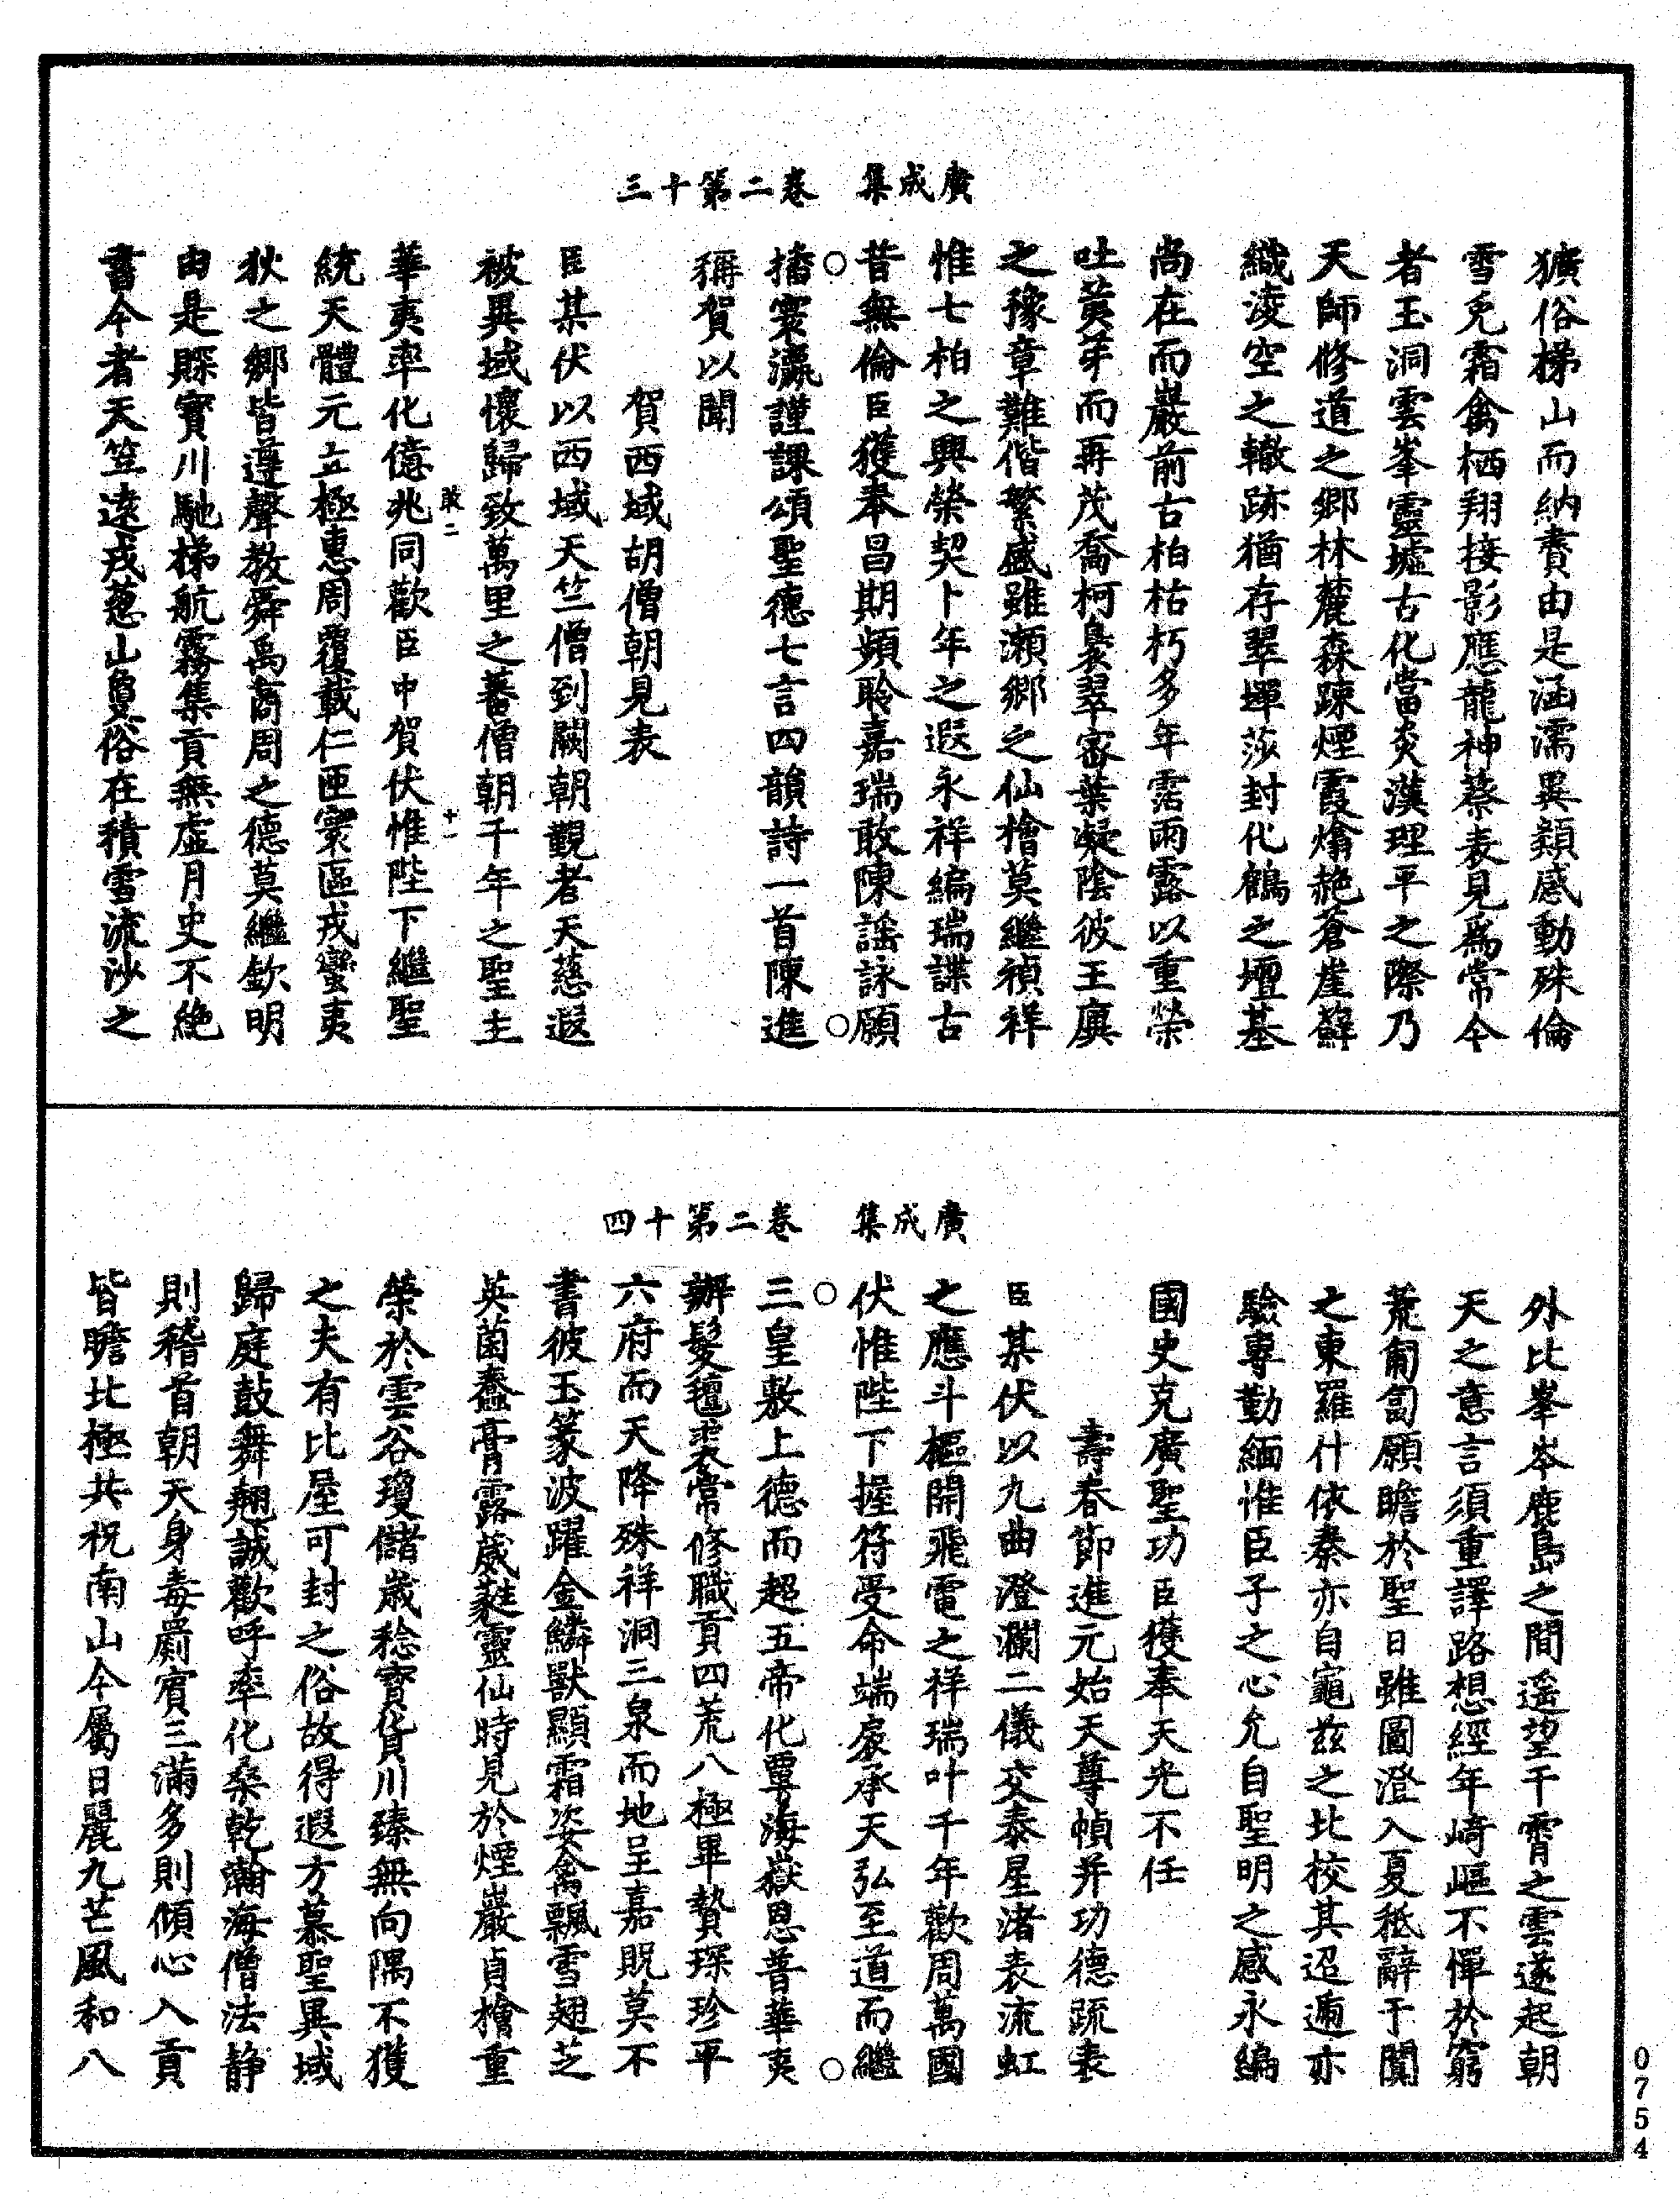 廣成集　卷二第十三
獷俗梯山而納賮由是涵濡異類感動殊倫
雪兔霜禽栖翔接影應龍神蔡表見爲常今
者玉洞雲峯靈墟古化當炎漢理平之際乃
天師修道之鄉林麓森疎煙霞熻赩蒼崖蘚
織淩空之轍跡猶存翠墠莎封化鶴之壇基
尚在而巖前古柏枯朽多年霑雨露以重榮
吐黄芽而再茂喬柯裊翠密葉凝陰彼王廙
之豫章難偕繁盛雖瀬鄉之仙檜莫繼禎祥
惟七柏之興榮契卜年之遐永祥編瑞諜古
昔無倫臣獲奉昌期頻聆嘉瑞敢陳謡詠願
播寰瀛謹課頌聖德七言四韻詩一首陳進
稱賀以聞
賀西域胡僧朝見表
臣某伏以西域天竺僧到闕朝覲者天慈遐
被異域懷歸致萬里之蕃僧朝千年之聖主
華夷率化億兆同歡臣中賀伏惟陛下繼聖
統天體元立極惠周覆載仁匝寰區戎蠻夷
狄之鄉皆遵聲教舜禹商周之德莫繼欽明
由是賝寳川馳梯航霧集貢無虛月史不絶
書今者天竺遠戎葱山敻俗在積雪流沙之
廣成集　卷二第十四
外比峯岑鹿島之間遥望干霄之雲遂起朝
天之意言須重譯路想經年崎嶇不憚於窮
荒匍匐願瞻於聖日雖圖澄入夏秪辭于闐
之東羅什依秦亦自龜兹之北校其迢遞亦
驗專勤緬惟臣子之心允自聖明之感永編
國史克廣聖功臣獲奉天光不任
壽春節進元始天尊幀并功德疏表
臣某伏以九曲澄瀾二儀交泰星渚表流虹
之應斗樞開飛電之祥瑞叶千年歡周萬國
伏惟陛下握符受命端扆承天弘至道而繼
三皇敷上德而超五帝化覃海嶽恩普華夷
辮髮氊裘常修職貢四荒八極畢贄琛珍平
六府而天降殊祥洞三泉而地呈嘉貺莫不
書彼玉篆波躍金鱗獸顯霜姿禽飄雪翅芝
英菌蠢膏露葳蕤靈仙時見於煙巖貞檜重
榮於雲谷瓊儲歲稔寳貨川臻無向隅不獲
之夫有比屋可封之俗故得遐方慕聖異域
歸庭鼓舞翹誠歡呼率化桑乾瀚海僧法靜
則稽首朝天身毒罽賓三滿多則傾心入貢
皆瞻北極共祝南山今屬日麗九芒風和八
0754